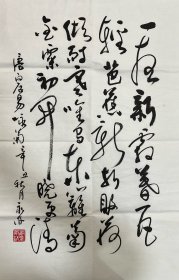 一夜新霜著瓦
轻芭蕉新折败荷
倾耐寒唯有东篱菊
金粟初开晓更清
唐白居易咏菊辛丑秋月